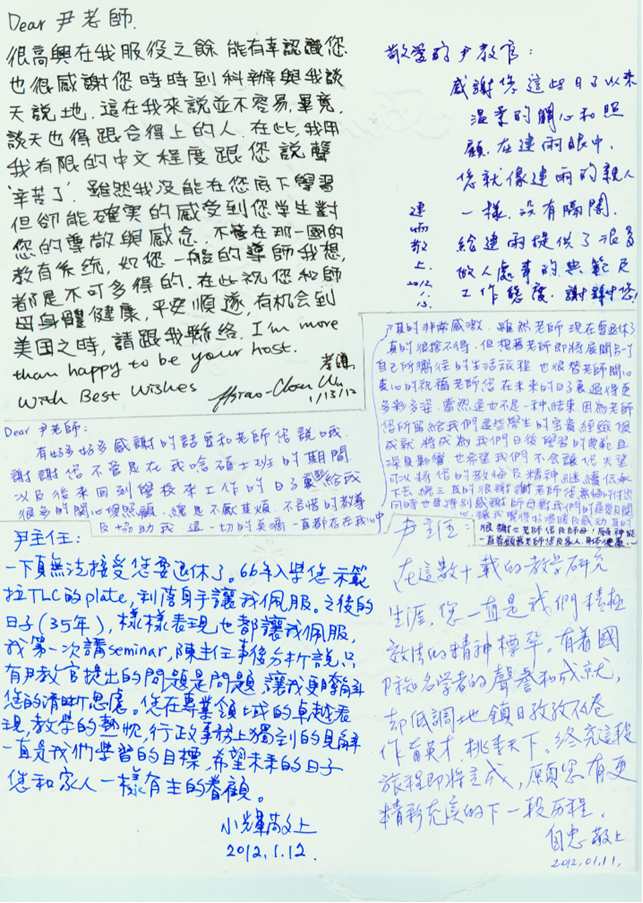 Dear 尹老師.
很高興在我服役之餘能有幸認識您
也很感謝您時時到科辦與我談
天說地. 這在我來說並不容易, 畢竟,
談天也得跟合得上的人. 在此, 我用
我有限的中文程度跟您說聲
'辛苦了'. 雖然我沒能在您底下學習
但卻能確實的感受到您學生對
您的尊敬與感念. 不管在那一國的
教育系統, 如您一般的導師我想,
都是不可多得的. 在此祝您和師
母身體健康, 平安順遂, 有机会到
美国之時, 請跟我聯絡. I'm more
than happy to be your host.
With Best Wishes
1/13/12
敬愛的尹教官:
感謝您這些日子以來
溫柔的關心和照
顧. 在連雨眼中,
您就像連雨的親人
一樣, 沒有隔閡.
給連雨提供了很多
做人處事的典範及
工作態度. 謝謝您!
連雨敬上
2012.1.13.
Dear 尹老師:
有好多好多感謝的話要和老師您說哦.
謝謝您不管是在我唸碩士班的期間
以及後來回到學校來工作的日子裏給我
很多的關心與照顧. 總是不厭其煩、不吝惜的教導
及協助我 這一切的美嘀一直都存在我心中
真的非常感激. 雖然老師現在要退休了
真的很捨不得. 但想著老師即將展開另一寸
自己所嚮往的生活旅程 也很替老師開心
衷心的祝福老師您在未來的日子裏過得更
多彩多姿. 當然這也不是一种結束. 因為老師
您所留給我們這些學生的寶貴經驗及
成就 將成為我們日後學習的典範且
深具影響 也希望我們不會讓您失望
可以將您的教悔及精神繼續傳承
下去. 總之真的很謝謝老師您無悔的付出
同時也要特別感謝師母對我們的疼愛與關
尹主任:
一下真無法接受您要退休了。66年入學您示範
拉TLC的plate, 利落身手讓我佩服。之後的
日子(35年), 樣樣表現也都讓我佩服,
我第一次講seminar, 陳主任事後分析說只
有尹教官提出的問題是問題, 讓我更瞭解
您的清晰思慮。您在專業領域的卓越表
現, 教學的熱忱, 行政事務上獨到的見解
一直是我們學習的目標, 希望未來的日子
您和家人一樣有主的眷顧。
小輝敬上
2012.1.12.
尹主任:
在這數十載的教學研究
生涯, 您一直是我們積極
效法的精神標竿。有著國
際知名學者的聲譽和成就,
却低調地鎮日孜孜不倦
作育英才, 桃李天下。終究這段
旅程即將完成, 願您有更
精彩充實的下一段历程.
自忠 敬上
2012.01.11.